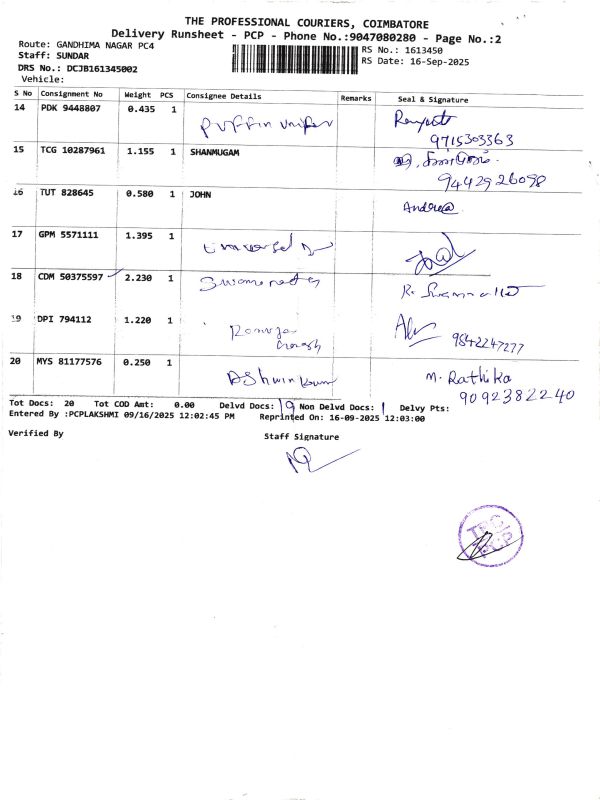 THE PROFESSIONAL COURIERS, COIMBATORE
Delivery Runsheet - PCP - Phone No.:9047080280 - Page No.:2
Route: GANDHIMA NAGAR PC4
RS No.: 1613450
Staff: SUNDAR
RS Date: 16-Sep-2025
DRS No.: DCJB161345002
Vehicle:
S No Consignment No Weight PCS Consignee Details Remarks Seal & Signature
14 PDK 9448807 0.435 1 Puffin
9715303363
15 TCG 10287961 1.155 1 SHANMUGAM
9442926098
16 TUT 828645 0.580 1 JOHN
17 GPM 5571111 1.395 1 Universal
18 CDM 50375597 2.230 1
19 DPI 794112 1.220 1
9842247277
20 MYS 81177576 0.250 1 Ashwin kumar M. Rathika
9092382240
Tot Docs: 20 Tot COD Amt: 0.00 Delvd Docs: 19 Non Delvd Docs: 1 Delvy Pts:
Entered By :PCPLAKSHMI 09/16/2025 12:02:45 PM Reprinted On: 16-09-2025 12:03:00
Verified By
Staff Signature